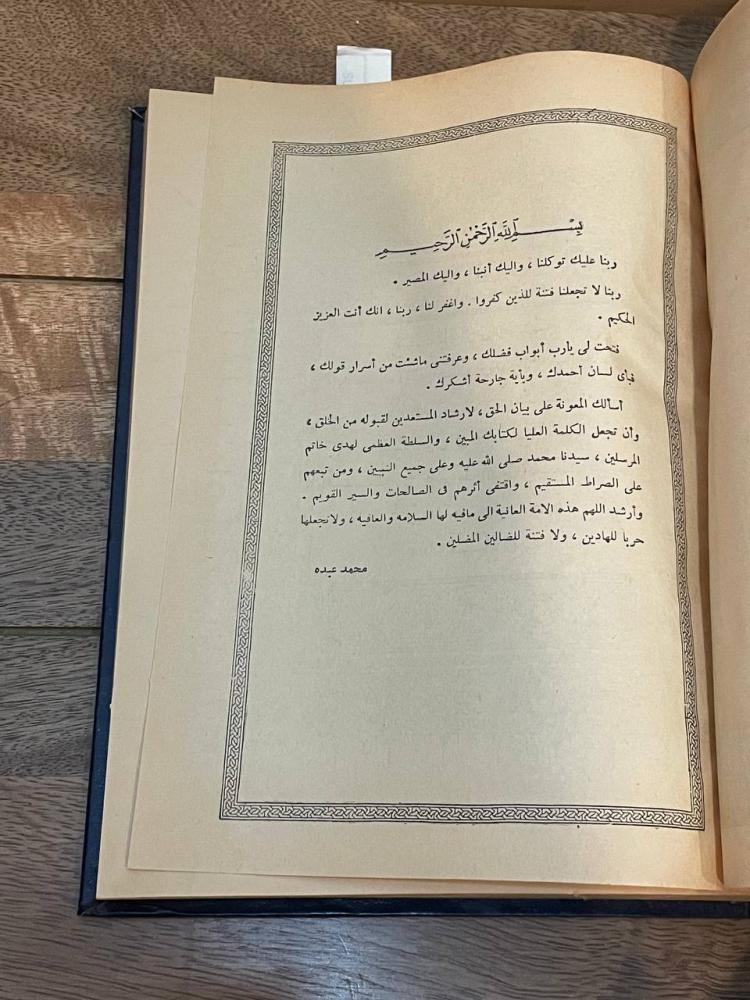 بِسْمِ اللَّهِ الرَّحْمٰنِ الرَّحِيمِ
ربنا عليك توكلنا ، واليك أنبنا ، واليك المصير .
ربنا لا تجعلنا فتنة للذين كفروا . واغفر لنا ، ربنا ، انك أنت العزيز
الحكيم .
فتحت لى يارب أبواب فضلك ، وعرفتنى ماشئت من أسرار قولك ،
فبأى لسان أحمدك ، وبأية جارحة أشكرك .
أسألك المعونة على بيان الحق ، لارشاد المستعدين لقبوله من الخلق ،
وأن تجعل الكلمة العليا لكتابك المبين ، والسلطة العظمى لهدى خاتم
المرسلين ، سيدنا محمد صلى الله عليه وعلى جميع النبيين ، ومن تبعهم
على الصراط المستقيم ، واقتفى أثرهم فى الصالحات والسير القويم .
وأرشد اللهم هذه الامة العانية الى مافيه لها السلامه والعافيه ، ولاتجعلها
حربا للهادين ، ولا فتنة للضالين المضلين .
محمد عبده